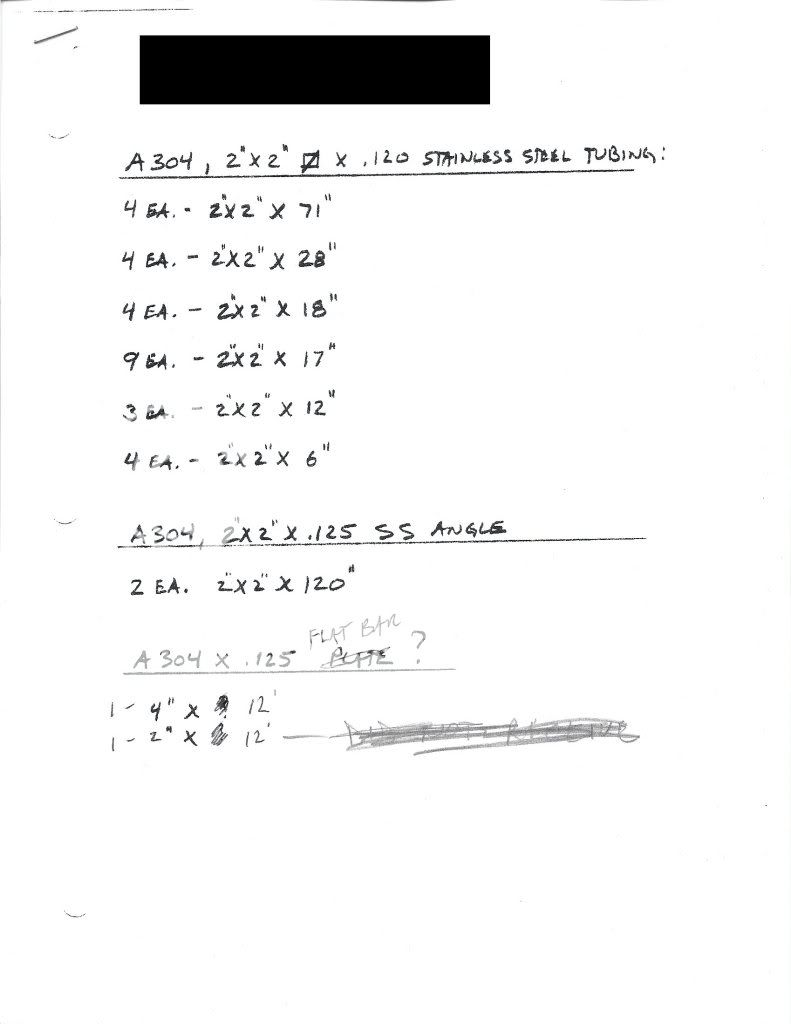 A304, 2"X2" X .120 STAINLESS STEEL TUBING:
4 EA. - 2"X2" X 71"
4 EA. - 2"X2" X 28"
4 EA. - 2"X2" X 18"
9 EA. - 2"X2" X 17"
3 EA. - 2"X2" X 12"
4 EA. - 2"X2" X 6"
A304, 2"X2" X .125 SS ANGLE
2 EA. 2"X2" X 120"
FLAT BAR
A304 X .125 PLATE ?
1 - 4" X 12'
1 - 2" X 12' — DID NOT RECEIVE